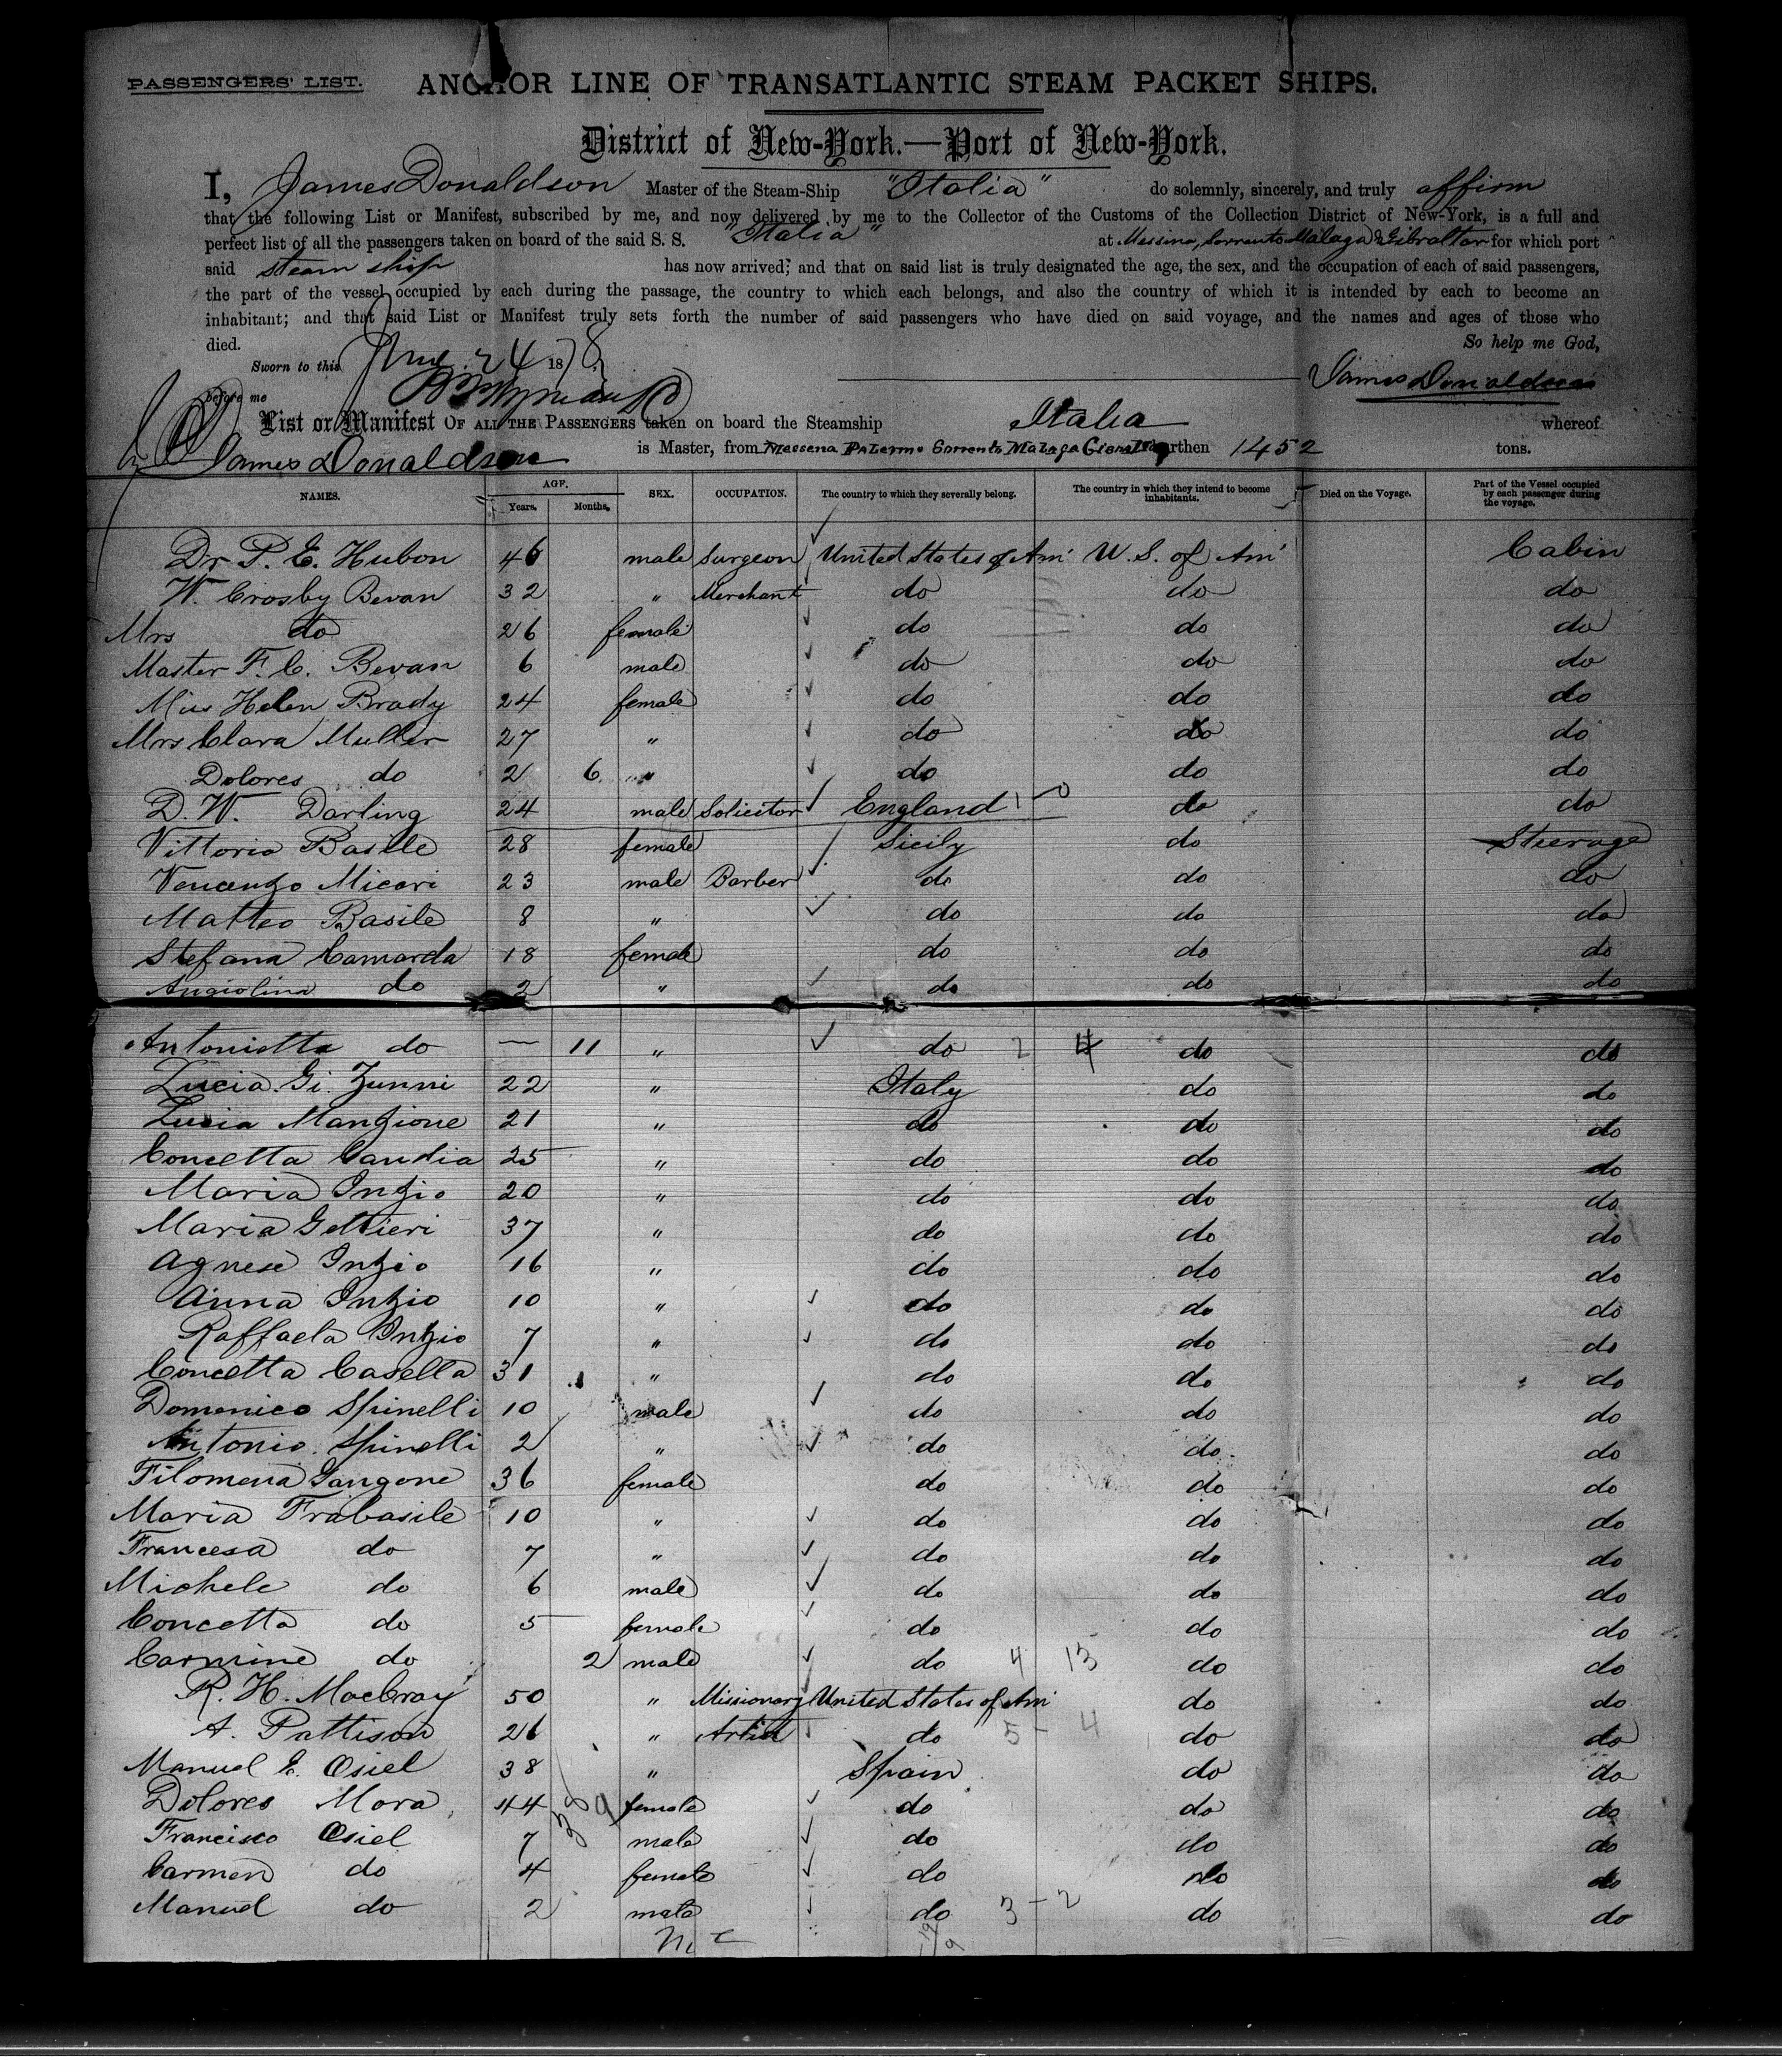 PASSENGERS' LIST.
ANCHOR LINE OF TRANSATLANTIC STEAM PACKET SHIPS.
District of New-York.—Port of New-York.
I, James Donaldson Master of the Steam-Ship "Italia" do solemnly, sincerely, and truly affirm
that the following List or Manifest, subscribed by me, and now delivered by me to the Collector of the Customs of the Collection District of New-York, is a full and
perfect list of all the passengers taken on board of the said S. S. "Italia" at Messina, Sorrento Malaga & Gibraltar for which port
said steam ship has now arrived; and that on said list is truly designated the age, the sex, and the occupation of each of said passengers,
the part of the vessel occupied by each during the passage, the country to which each belongs, and also the country of which it is intended by each to become an
inhabitant; and that said List or Manifest truly sets forth the number of said passengers who have died on said voyage, and the names and ages of those who
died. So help me God,
Sworn to this June 24 1878 James Donaldson
before me
List or Manifest OF ALL THE PASSENGERS taken on board the Steamship Italia whereof
James Donaldson is Master, from Messena Palermo Sorrento Malaga burthen 1452 tons.
NAMES. AGE. Years. Months. SEX. OCCUPATION. The country to which they severally belong. The country in which they intend to become inhabitants. Died on the Voyage. Part of the Vessel occupied by each passenger during the voyage.
Dr P. E. Hubon 46 male Surgeon United States of Am' U. S. of Am' Cabin
W. Crosby Bevan 32 " Merchant do do do
Mrs do 26 female do do do
Master F. C. Bevan 6 male do do do
Miss Helen Brady 24 female do do do
Mrs Clara Muller 27 " do do do
Dolores do 2 6 " do do do
D. W. Darling 24 male Solicitor England 1 - 0 do do
Vittoria Basile 28 female Sicily do Steerage
Vencenzo Micari 23 male Barber do do do
Matteo Basile 8 " do do do
Stefana Camarda 18 female do do do
Angiolina do 2 " do do do
Antonietta do — 11 " do 2 4 do do
Lucia Gi. Zunni 22 " Italy do do
Lucia Manzione 21 " do do do
Concetta Candia 25 " do do do
Maria Inzio 20 " do do do
Maria Geltieri 37 " do do do
Agnese Inzio 16 " do do do
Anna Inzio 10 " do do do
Raffaela Inzio 7 " do do do
Concetta Casella 31 " do do do
Domenico Spinelli 10 male do do do
Antonio Spinelli 2 " do do do
Filomena Gangone 36 female do do do
Maria Frabasile 10 " do do do
Francesa do 7 " do do do
Michele do 6 male do do do
Concetta do 5 female do do do
Carmine do 2 male do 4 13 do do
R. H. MacCray 50 " Missionary United States of Am' do do
A. Pattison 26 " Artist do 5 - 4 do do
Manuel E. Osiel 38 " Spain do do
Dolores Mora 44 female do do do
Francisco Osiel 7 male do do do
Carmen do 4 female do do do
Manuel do 2 male do 3 - 2 do do